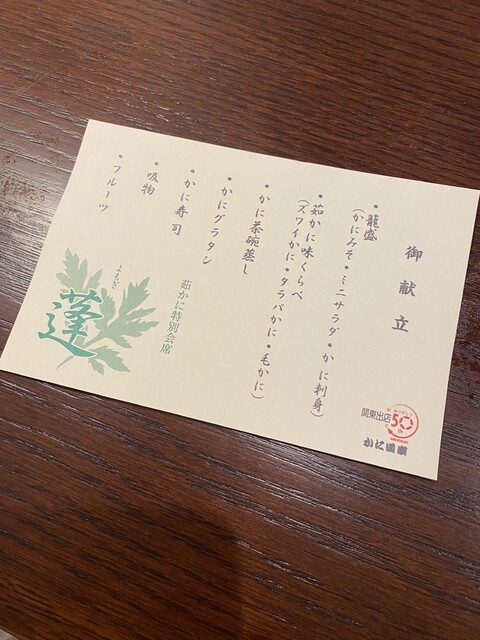 御献立
・籠盛
(かにみそ・ミニサラダ・かに刺身)
・茹かに味くらべ
(ズワイかに・タラバかに・毛かに)
・かに茶碗蒸し
・かにグラタン
・かに寿司
・吸物
・フルーツ
茹かに特別会席
よもぎ
蓬
関東出店
50
かに道楽